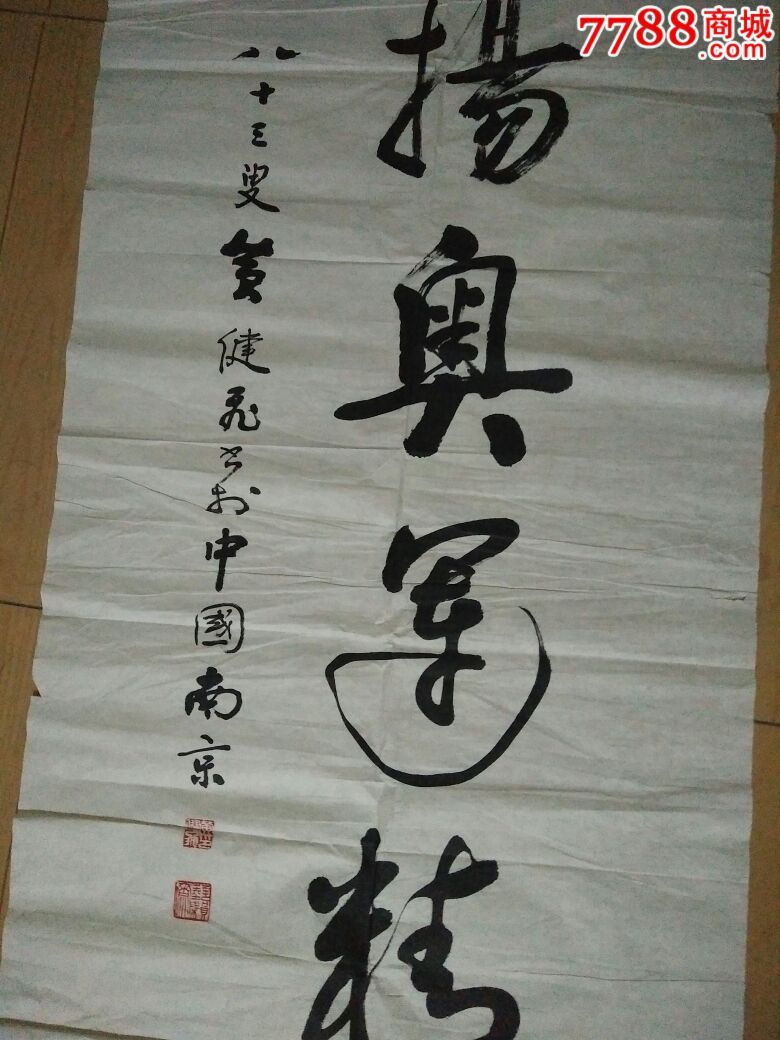 揚奧運精
八十三叟黄健飛书於中國南京
7788商城
.com